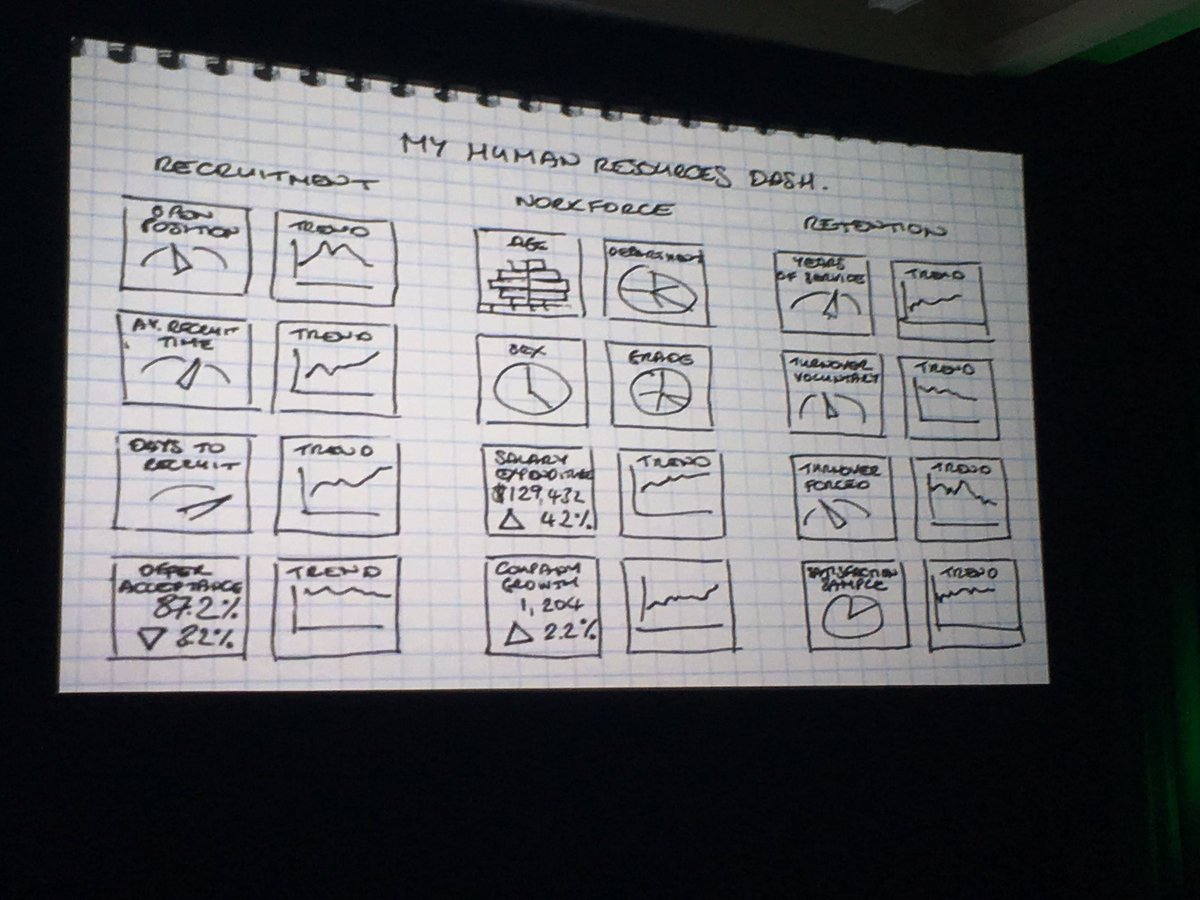 MY HUMAN RESOURCES DASH.
RECRUITMENT
OPEN
POSITION
TREND
AV. RECRUIT
TIME
TREND
DAYS TO
RECRUIT
TREND
OFFER
ACCEPTANCE
87.2%
▽ 8.2%
TREND
WORKFORCE
AGE
DEPARTMENT
SEX
GRADE
SALARY
EXPENDITURE
$129,432
△ 4.2%
TREND
COMPANY
GROWTH
1,204
△ 2.2%
RETENTION
YEARS
OF SERVICE
TREND
TURNOVER
VOLUNTARY
TREND
TURNOVER
FORCED
TREND
SATISFACTION
SAMPLE
TREND